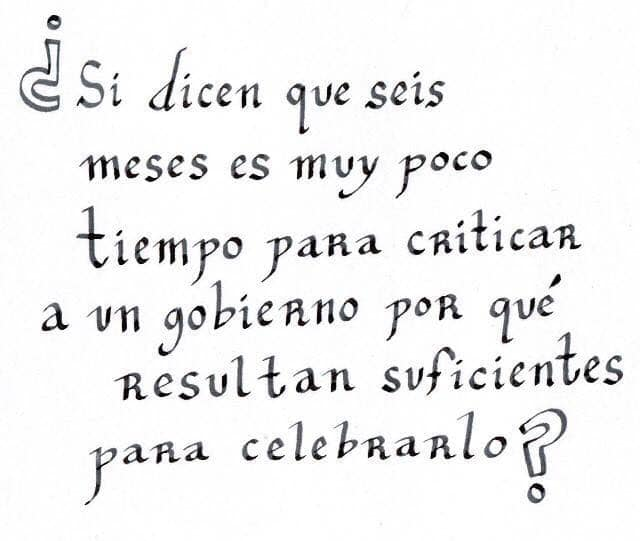 ¿Si dicen que seis
meses es muy poco
tiempo para criticar
a un gobierno por qué
resultan suficientes
para celebrarlo?